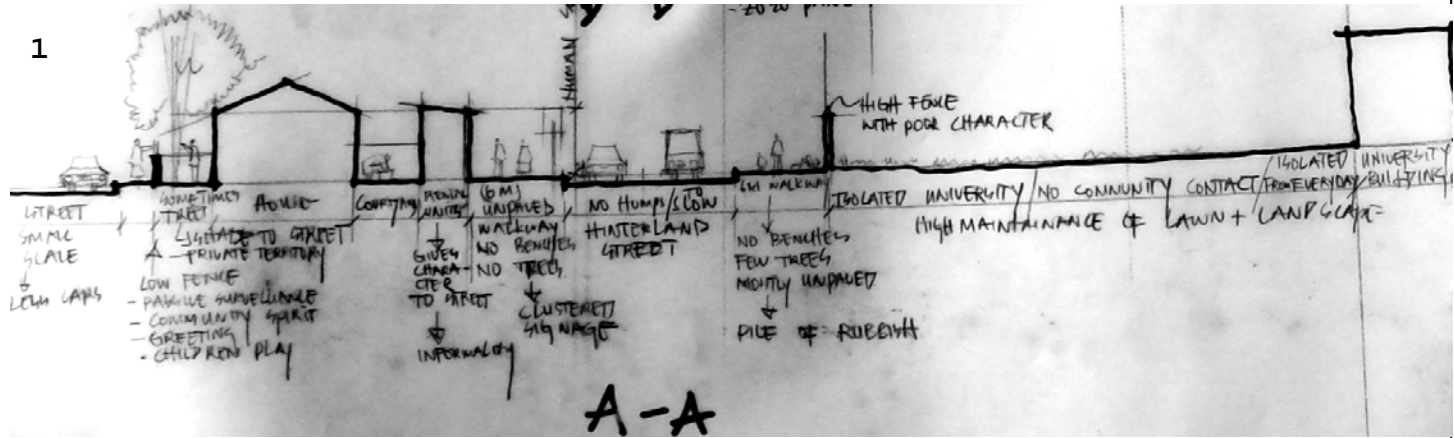 1
HUMAN
HIGH FENCE
WITH POOR CHARACTER
STREET
SMALL
SCALE
LESS CARS
SOMETIMES
TREE
HOUSE
FACADE TO STREET
A - PRIVATE TERRITORY
LOW FENCE
- PASSIVE SURVEILLANCE
- COMMUNITY SPIRIT
- GREETING
- CHILDREN PLAY
COURTYARD
RENTAL
UNITS
GIVES
CHARA-
CTER
TO STREET
INFORMALITY
(6M)
UNPAVED
WALKWAY
NO BENCHES
NO TREES
CLUSTERED
SIGNAGE
NO HUMPS/SLOW
HINTERLAND
STREET
6M WALKWAY
NO BENCHES
FEW TREES
MOSTLY UNPAVED
PILE OF RUBBISH
ISOLATED UNIVERSITY/NO COMMUNITY CONTACT/
HIGH MAINTAINANCE OF LAWN + LANDSCAPE
ISOLATED
FROM EVERYDAY
UNIVERSITY
BUILDING
A-A